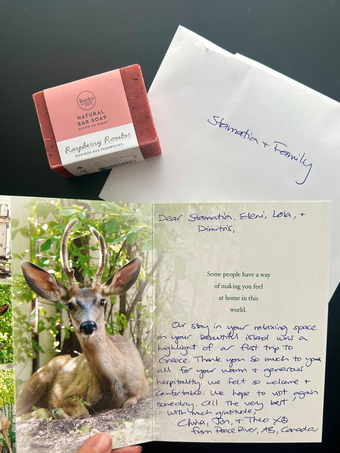 Rocky
NATURAL
BAR SOAP
SAVON EN BARRE
Raspberry Rooibos
ROOIBOS AUX FRAMBOISES
Stamatia + Family
Dear Stamatia, Eleni, Lola, +
Dimitris,
Some people have a way
of making you feel
at home in this
world.
Our stay in your relaxing space
on your beautiful island was a
highlight of our first trip to
Greece. Thank you so much to you
all for your warm & generous
hospitality. we felt so welcome &
comfortable. We hope to visit again
someday. All the very best,
with much gratitude,
Jon, & Theo XO
from Peace River, AB, Canada